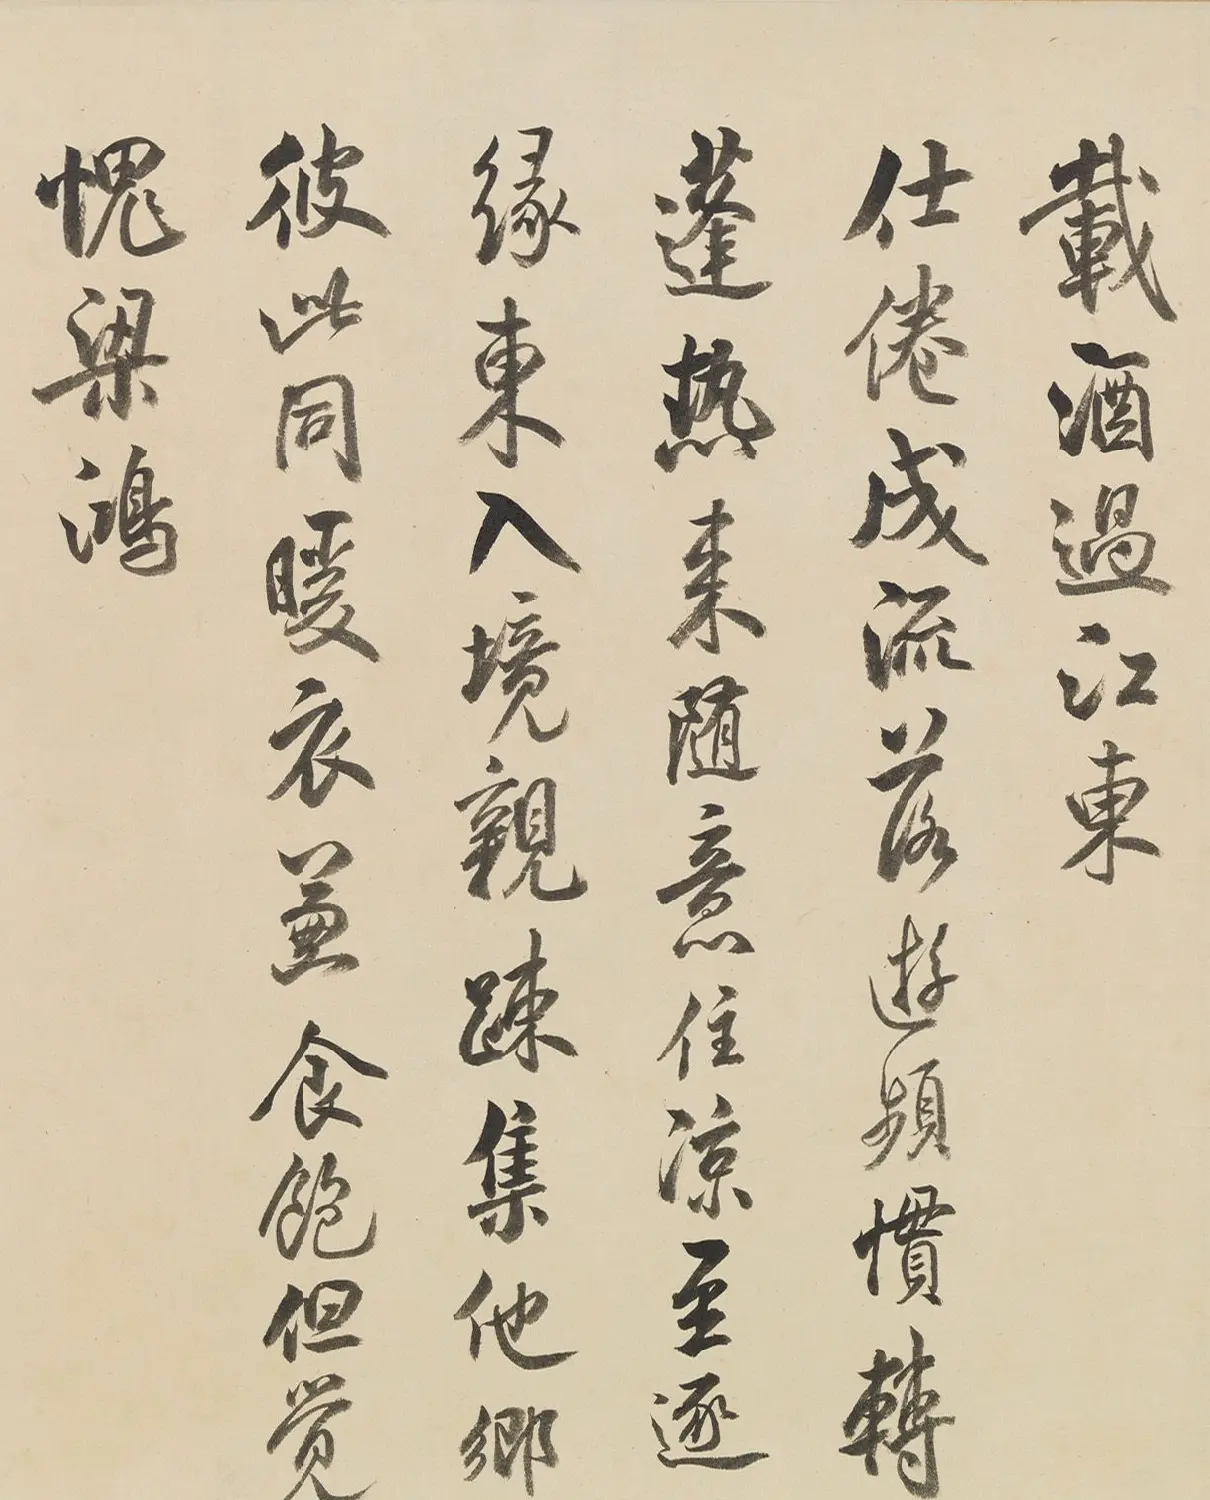 載酒過江東
仕倦成流落遊頻慣轉
蓬熱来随意住涼至逐
緣東入境親疎集他鄉
彼此同暖衣兼食飽但覚
愧梁鴻